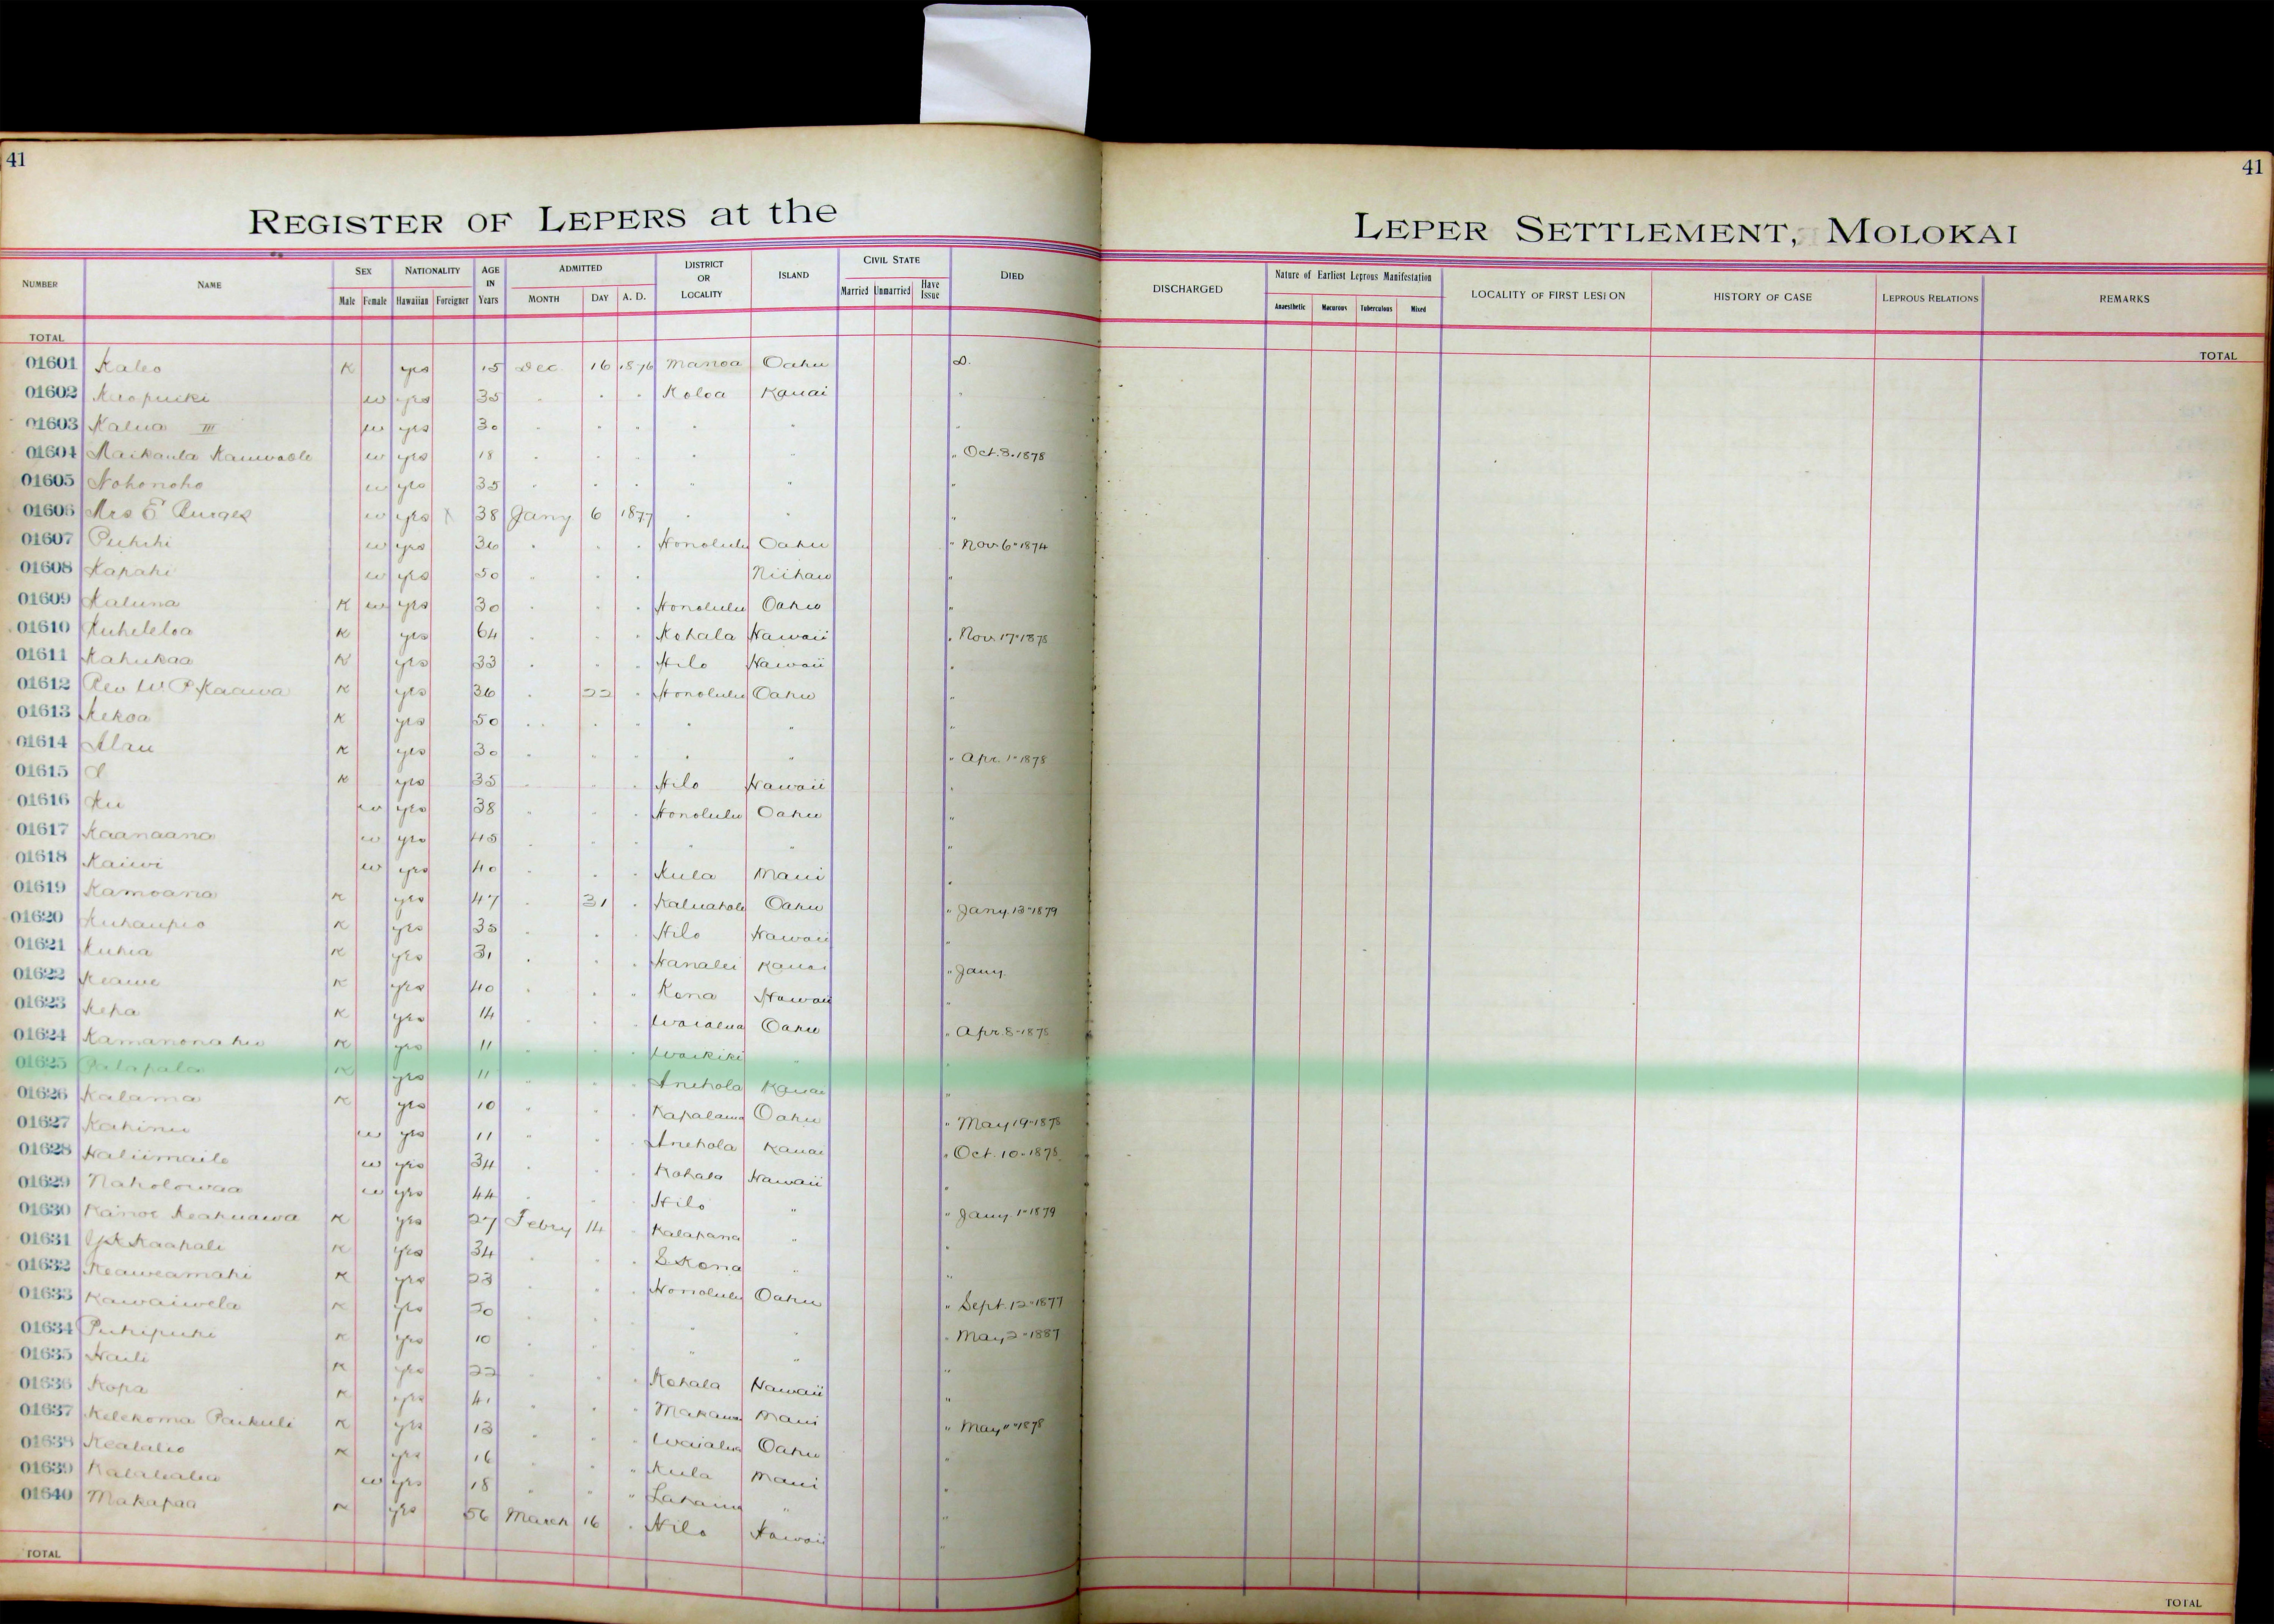 41
41
REGISTER OF LEPERS at the LEPER SETTLEMENT, MOLOKAI
NUMBER NAME SEX Male Female NATIONALITY Hawaiian Foreigner AGE IN Years ADMITTED MONTH DAY A. D. DISTRICT OR LOCALITY ISLAND CIVIL STATE Married Unmarried Have Issue DIED DISCHARGED Nature of Earliest Leprous Manifestation Anaesthetic Macurous Tuberculous Mixed LOCALITY OF FIRST LESION HISTORY OF CASE LEPROUS RELATIONS REMARKS
TOTAL TOTAL
01601 Kaleo K yes 15 Dec. 16 1876 Manoa Oahu D.
01602 w yes 35 " " " Koloa Kauai "
01603 Kalua III w yes 30 " " " " " "
01604 w yes 18 " " " " " " Oct. 3. 1878
01605 Nohonoho w yes 35 " " " " " "
01606 Mrs E Burges w yes X 38 Jany 6 1877 " " "
01607 Puhihi w yes 36 " " " Honolulu Oahu " Nov 6" 1874
01608 Kapahi w yes 50 " " " Niihau "
01609 Kaluna K w yes 30 " " " Honolulu Oahu "
01610 Kuheleloa K yes 64 " " " Kohala Hawaii " Nov. 17" 1878
01611 Kahukaa K yes 33 " " " Hilo Hawaii "
01612 Rev W. P. Kaawa K yes 36 " 22 " Honolulu Oahu "
01613 Kekoa K yes 50 " " " " " "
01614 Alau K yes 30 " " " " " " Apr. 1" 1878
01615 K yes 35 " " " Hilo Hawaii "
01616 Ku w yes 38 " " " Honolulu Oahu "
01617 Kaanaana w yes 45 " " " " " "
01618 Kaiwi w yes 40 " " " Kula Maui "
01619 Kamoana K yes 47 " 31 " Oahu " Jany. 13" 1879
01620 Kuhaupio K yes 35 " " " Hilo Hawaii "
01621 Kuhia K yes 31 " " " Hanalei Kauai " Jany.
01622 Keawe K yes 40 " " " Kona Hawaii "
01623 Kepa K yes 14 " " " Waialua Oahu " Apr. 8" 1878
01624 K yes 11 " " " Waikiki " "
01625 Palapala K yes 11 " " " Anehola Kauai "
01626 Kalama K yes 10 " " " Kapalama Oahu " May 19" 1878
01627 Kahinu w yes 11 " " " Anehola Kauai " Oct. 10" 1878
01628 Haliimaile w yes 34 " " " Kohala Hawaii "
01629 Naholowaa w yes 44 " " " Hilo " " Jany. 1" 1879
01630 Kanoe Keakuawa K yes 27 Febry 14 " Kalapana " "
01631 Kaapale K yes 34 " " " S Kona " "
01632 Keaweamahi K yes 23 " " " Honolulu Oahu " Sept. 12" 1877
01633 Kawaiwela K yes 20 " " " " " " May 2" 1887
01634 Puhipuhi K yes 10 " " " " " "
01635 Haili K yes 22 " " " Kohala Hawaii "
01636 Kopa K yes 41 " " " Makawao Maui " May 11" 1878
01637 Kelekoma Paikuli K yes 13 " " " Waialua Oahu "
01638 Kealaleo K yes 16 " " " Kula Maui "
01639 w yes 18 " " " Lahaina " "
01640 Makapaa K yes 56 March 16 " Hilo Hawaii "
TOTAL TOTAL